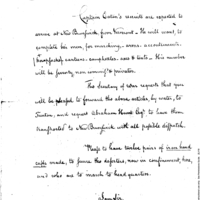 Captain Conlin's recruits are expected to
arrive at New Brunswick from Vermont. He will want, to
complete his men, for marching, arms, accoutrements,
knapsacks, canteens, camp kettles, axes & tents. His number
will be seventy non comm'd & privates.
The Secretary of War requests that you
will be pleased to forward the above articles, by water, to
Trenton, and request Abraham Hunt Esqr. to have them
transported to New Brunswick with all possible dispatch.
Please to have twelve pairs of iron hand
cuffs made, to fasten the deserters, now in confinement, here,
and who are to march to head quarters.
I am Sir